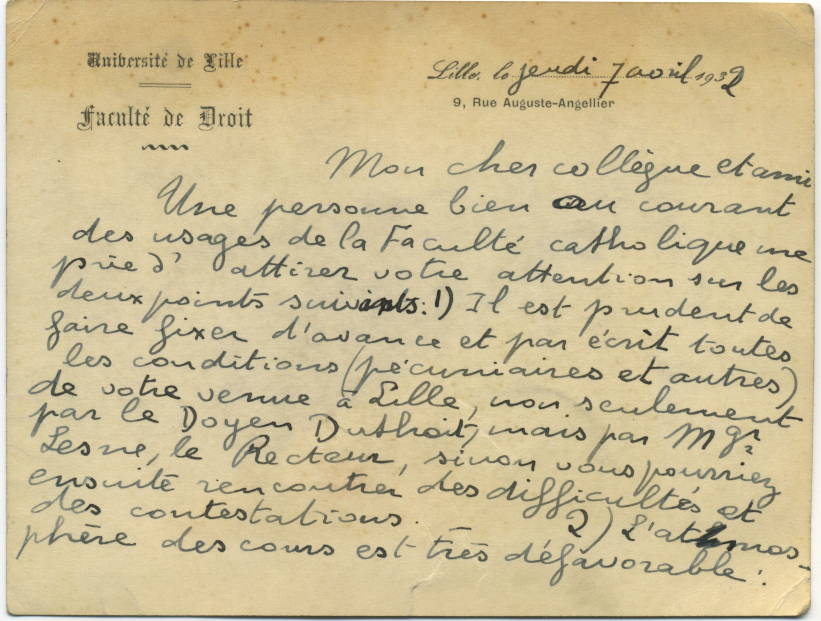 Université de Lille
Faculté de Droit
Lille, le jeudi 7 avril 1932
9, Rue Auguste-Angellier
Mon cher collègue et ami
Une personne bien au courant
des usages de la Faculté catholique me
prie d' attirer votre attention sur les
deux points suivants: 1) Il est prudent de
faire fixer d'avance et par écrit toutes
les conditions (pécuniaires et autres)
de votre venue à Lille, non seulement
par le Doyen Duthoit, mais par Mgr
Lesne, le Recteur, sinon vous pourriez
ensuite rencontrer des difficultés et
des contestations. 2) L'atmos-
phère des cours est très défavorable :